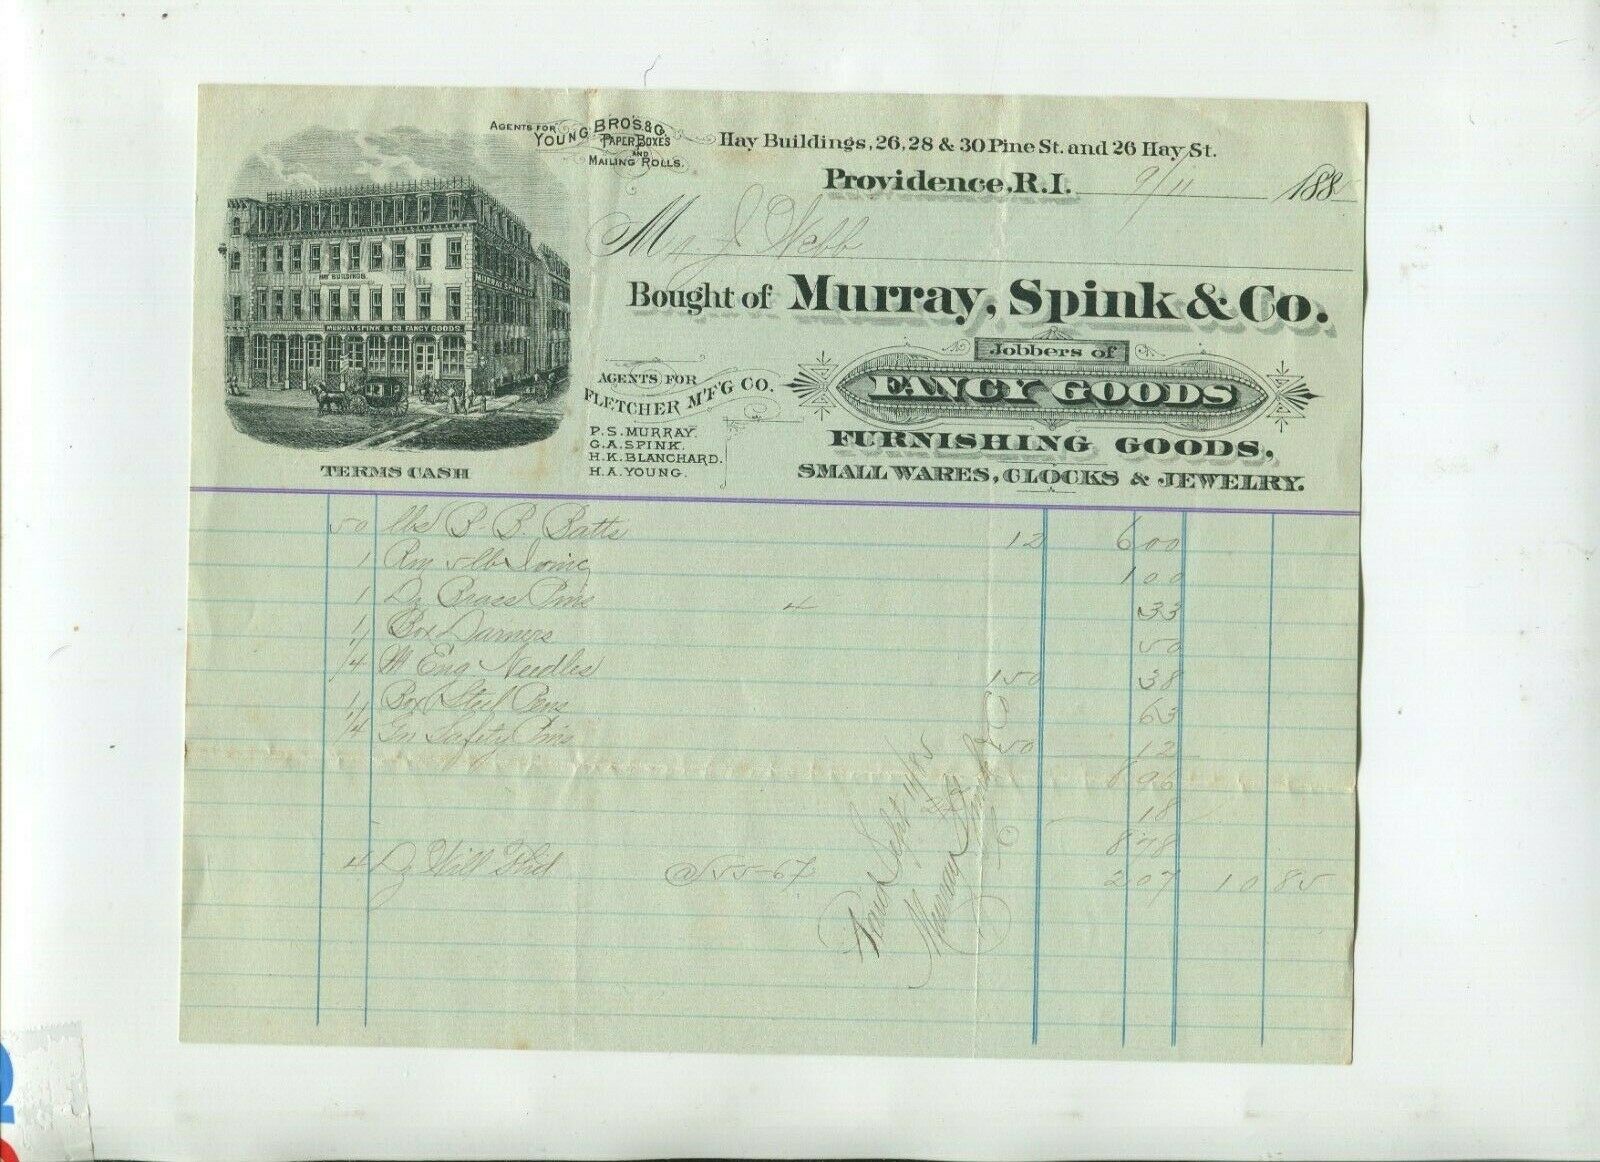 AGENTS FOR YOUNG BRO'S. & Co.
PAPER BOXES
AND
MAILING ROLLS.
Hay Buildings, 26, 28 & 30 Pine St. and 26 Hay St.
Providence, R.I. 9/11 1885
M J Webb
Bought of Murray, Spink & Co.
HAY BUILDINGS.
MURRAY, SPINK
MURRAY, SPINK & CO. FANCY GOODS.
TERMS CASH
AGENTS FOR
FLETCHER M'F'G CO.
P. S. MURRAY.
G. A. SPINK.
H. K. BLANCHARD.
H. A. YOUNG.
Jobbers of
FANCY GOODS
FURNISHING GOODS,
SMALL WARES, CLOCKS & JEWELRY.
50 lbs B. B. Batts 12 6 00
1 5 lb 1 00
1 Dz Brass Pins 4 33
1 Box Darners 50
1/4 M Eng Needles 150 38
1 Box Steel Pens 63
1/4 Gr Safety Pins 50 12
8 96
18
8 78
4 Dz Will Thd @ 55-6% 2 07 10 85
Paid Sept 11/85
Murray Spink & Co